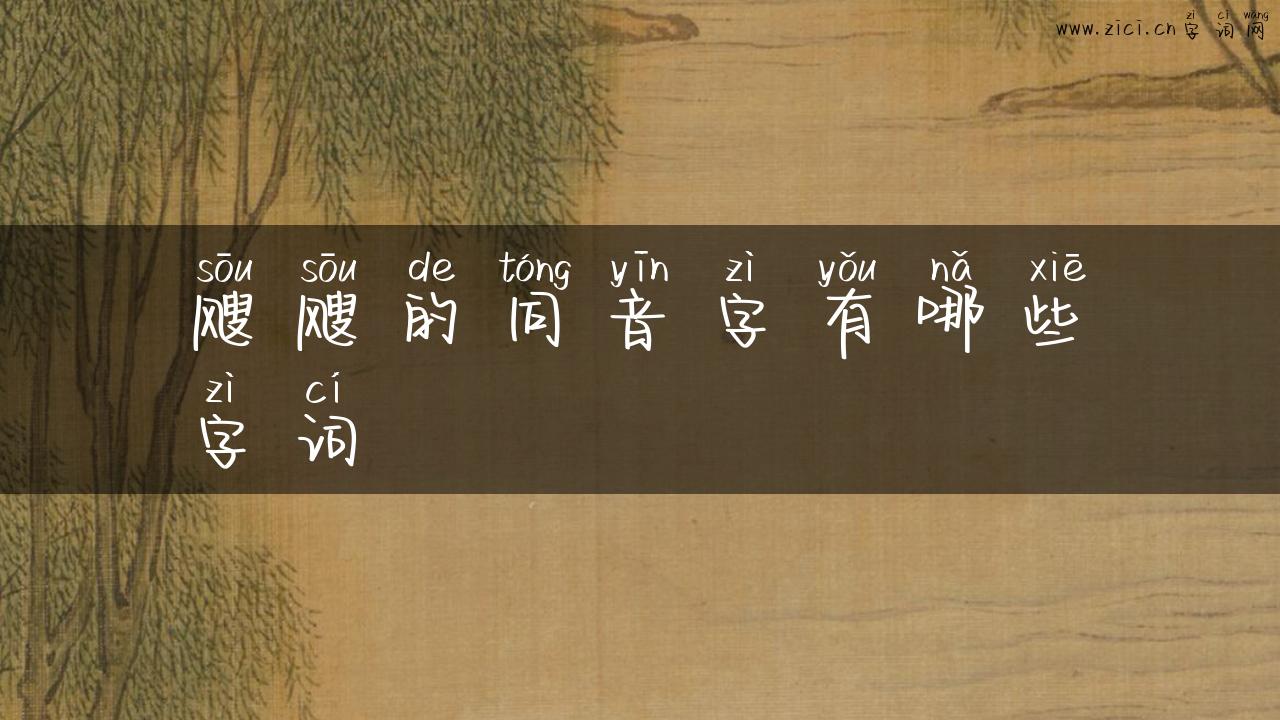 zì cí wǎng
www.zici.cn字词网
sōu sōu de tóng yīn zì yǒu nǎ xiē
飕飕的同音字有哪些
zì cí
字词